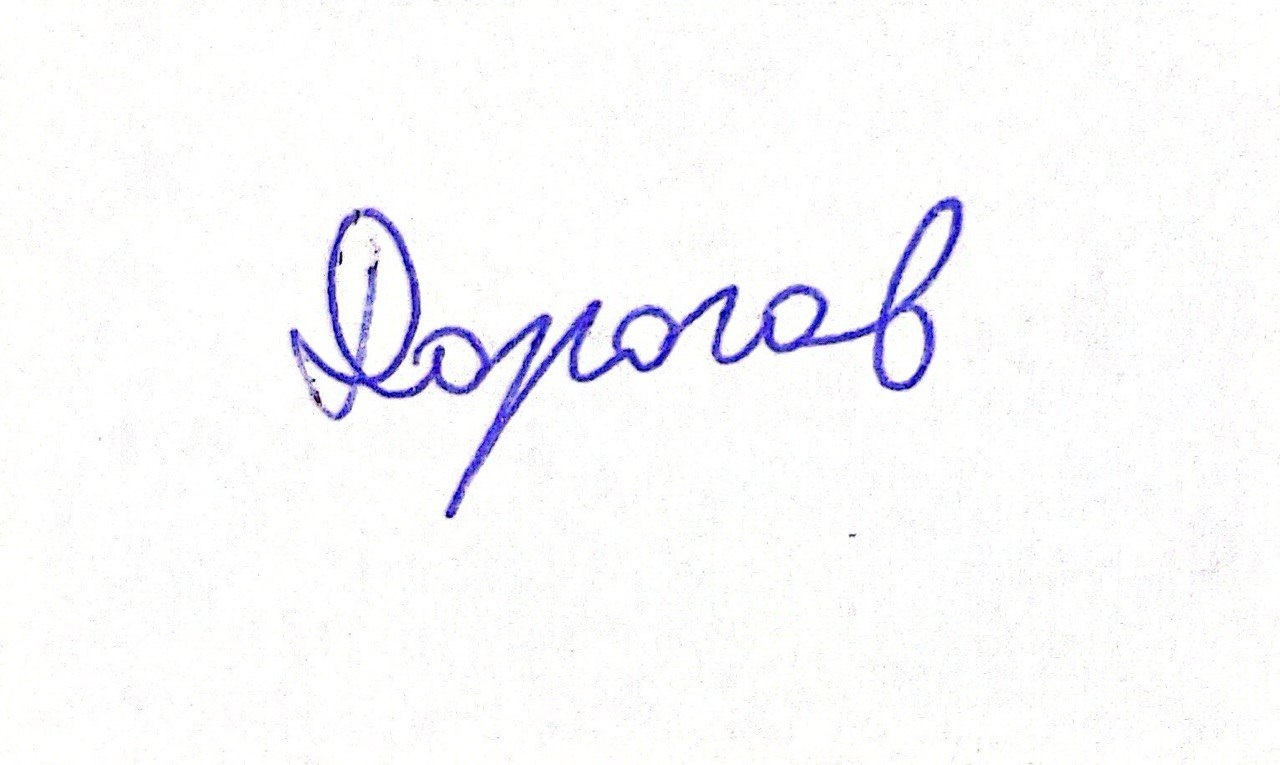 Дорогов